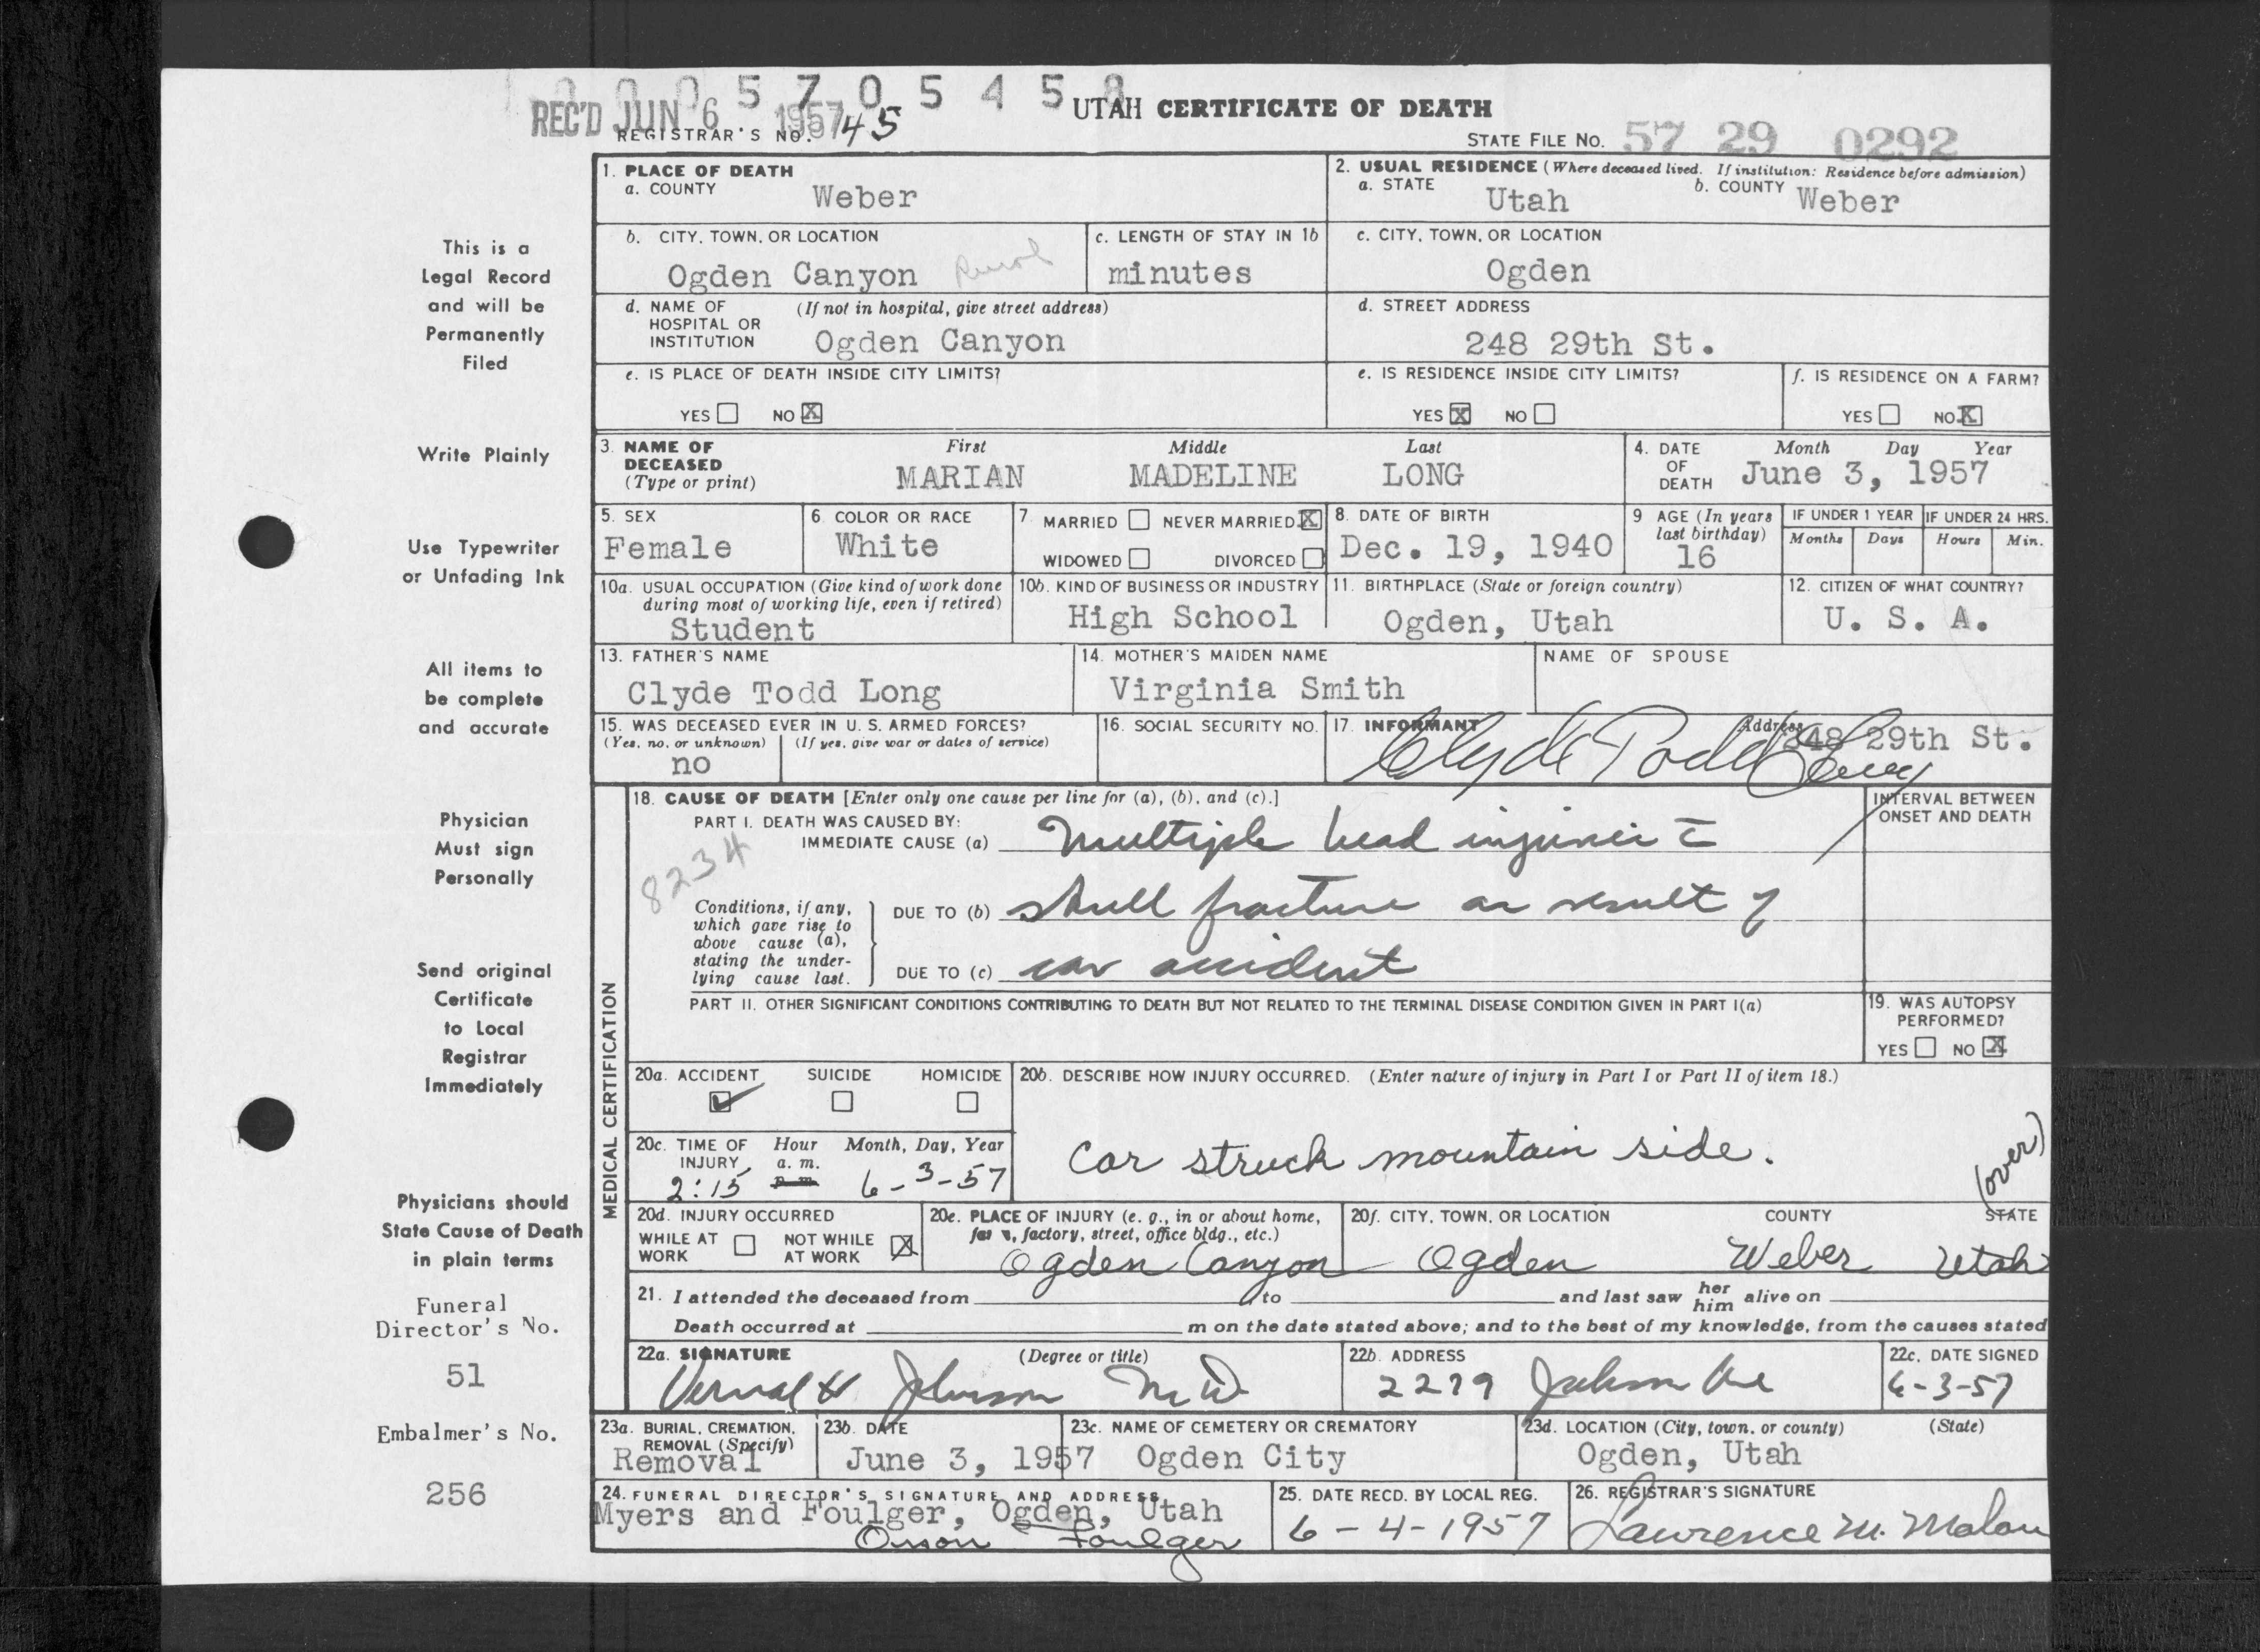 0 0 0 5 7 0 5 4 5 8
REC'D JUN 6 1957
UTAH CERTIFICATE OF DEATH
REGISTRAR'S NO. 45
STATE FILE NO. 57 29 0292
1. PLACE OF DEATH
a. COUNTY Weber
2. USUAL RESIDENCE (Where deceased lived. If institution: Residence before admission)
a. STATE Utah b. COUNTY Weber
b. CITY, TOWN, OR LOCATION Ogden Canyon Rural
c. LENGTH OF STAY IN 1b minutes
c. CITY, TOWN, OR LOCATION Ogden
d. NAME OF HOSPITAL OR INSTITUTION (If not in hospital, give street address) Ogden Canyon
d. STREET ADDRESS 248 29th St.
e. IS PLACE OF DEATH INSIDE CITY LIMITS?
YES NO X
e. IS RESIDENCE INSIDE CITY LIMITS?
YES X NO
f. IS RESIDENCE ON A FARM?
YES NO X
3. NAME OF DECEASED (Type or print)
First Middle Last
MARIAN MADELINE LONG
4. DATE OF DEATH Month Day Year
June 3, 1957
5. SEX Female
6. COLOR OR RACE White
7. MARRIED NEVER MARRIED X
WIDOWED DIVORCED
8. DATE OF BIRTH Dec. 19, 1940
9 AGE (In years last birthday) 16
IF UNDER 1 YEAR Months Days
IF UNDER 24 HRS. Hours Min.
10a. USUAL OCCUPATION (Give kind of work done during most of working life, even if retired) Student
10b. KIND OF BUSINESS OR INDUSTRY High School
11. BIRTHPLACE (State or foreign country) Ogden, Utah
12. CITIZEN OF WHAT COUNTRY? U. S. A.
13. FATHER'S NAME Clyde Todd Long
14. MOTHER'S MAIDEN NAME Virginia Smith
NAME OF SPOUSE
15. WAS DECEASED EVER IN U. S. ARMED FORCES?
(Yes, no, or unknown) (If yes, give war or dates of service)
no
16. SOCIAL SECURITY NO.
17. INFORMANT Clyde Todd Long Address 248 29th St.
MEDICAL CERTIFICATION
18. CAUSE OF DEATH [Enter only one cause per line for (a), (b), and (c).]
INTERVAL BETWEEN ONSET AND DEATH
PART I. DEATH WAS CAUSED BY:
IMMEDIATE CAUSE (a) Multiple head injuries c̄
8234
Conditions, if any, which gave rise to above cause (a), stating the underlying cause last.
DUE TO (b) skull fracture as result of
DUE TO (c) car accident
PART II. OTHER SIGNIFICANT CONDITIONS CONTRIBUTING TO DEATH BUT NOT RELATED TO THE TERMINAL DISEASE CONDITION GIVEN IN PART I(a)
19. WAS AUTOPSY PERFORMED?
YES NO X
20a. ACCIDENT ✓ SUICIDE HOMICIDE
20b. DESCRIBE HOW INJURY OCCURRED. (Enter nature of injury in Part I or Part II of item 18.)
Car struck mountain side.
(over)
20c. TIME OF INJURY Hour Month, Day, Year
2:15 a. m. p. m. 6-3-57
20d. INJURY OCCURRED
WHILE AT WORK NOT WHILE AT WORK X
20e. PLACE OF INJURY (e. g., in or about home, farm, factory, street, office bldg., etc.)
Ogden Canyon
20f. CITY, TOWN, OR LOCATION COUNTY STATE
Ogden Weber Utah
21. I attended the deceased from to and last saw her him alive on
Death occurred at m on the date stated above; and to the best of my knowledge, from the causes stated
22a. SIGNATURE (Degree or title)
Vernal H Johnson M D
22b. ADDRESS 2279 Jackson Ave
22c. DATE SIGNED 6-3-57
23a. BURIAL, CREMATION, REMOVAL (Specify) Removal
23b. DATE June 3, 1957
23c. NAME OF CEMETERY OR CREMATORY Ogden City
23d. LOCATION (City, town, or county) (State) Ogden, Utah
24. FUNERAL DIRECTOR'S SIGNATURE AND ADDRESS
Myers and Foulger, Ogden, Utah
Orson Foulger
25. DATE RECD. BY LOCAL REG. 6-4-1957
26. REGISTRAR'S SIGNATURE Lawrence M. Malan
This is a
Legal Record
and will be
Permanently
Filed
Write Plainly
Use Typewriter
or Unfading Ink
All items to
be complete
and accurate
Physician
Must sign
Personally
Send original
Certificate
to Local
Registrar
Immediately
Physicians should
State Cause of Death
in plain terms
Funeral
Director's No.
51
Embalmer's No.
256